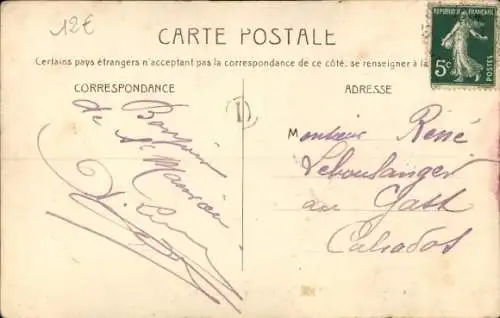 12€
CARTE POSTALE
Certains pays étrangers n'acceptant pas la correspondance de ce côté, se renseigner à la
RÉPUBLIQUE FRANÇAISE
5c
POSTES
CORRESPONDANCE
Bonjour
de St
D
ADRESSE
Monsieur René
Leboulanger
au Gast
Calvados